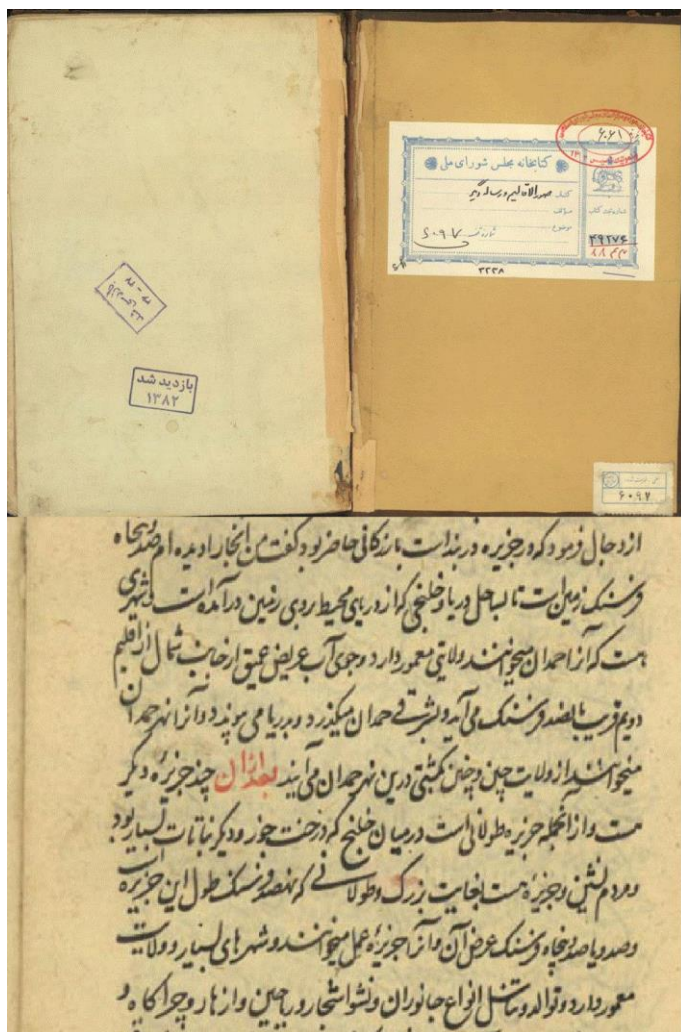 ۶۰۶۱
کتابخانه مجلس شورای ملی
کتاب صور الاقالیم و رساله دیگر
مؤلف
موضوع
شماره ثبت کتاب
۴۹۲۷۶
۶۰۹۷
۳۲۳۸
بازدید شد
۱۳۸۲
۶۰۹۷
از دجال فرمود که در جزیره در بند است بازرگانی حاضر بود گفت من آنجا را دیده ام صد و پنجاه
فرسنک زمین است تا لب ساحل دریا و خلیجی که از دریای محیط بروی زمین در آمده است و شهری
هست که آنرا حمدان میخوانند ولایتی معمور دارد و جوی آب عریض عمیق از جانب شمال از اقلیم
دویم قریب پانصد فرسنک می آید و بشرقی حمدان میکذرد و بدریا می پیوندد و آنرا نهر حمدان
میخوانند از ولایت چین و چین بکشتی درین نهر حمدان می آیند بعد ازان چند جزیره دیکر
هست و از آنجمله جزیره طولانی است در میان خلیج که درخت جوز و دیکر نباتات بسیار بود
و مردم نشین و جزیره هست بغایت بزرک و طولانی که نهصد فرسنک طول این جزیره است
و صد و یا صد و پنجاه فرسنک عرض آن و آنرا جزیره عمل میخوانند و شهرهای بسیار و ولایت
معمور دارد و توالد و تناسل انواع جانوران و نشو اشجار و ریاحین و ازهار و چراکاه و